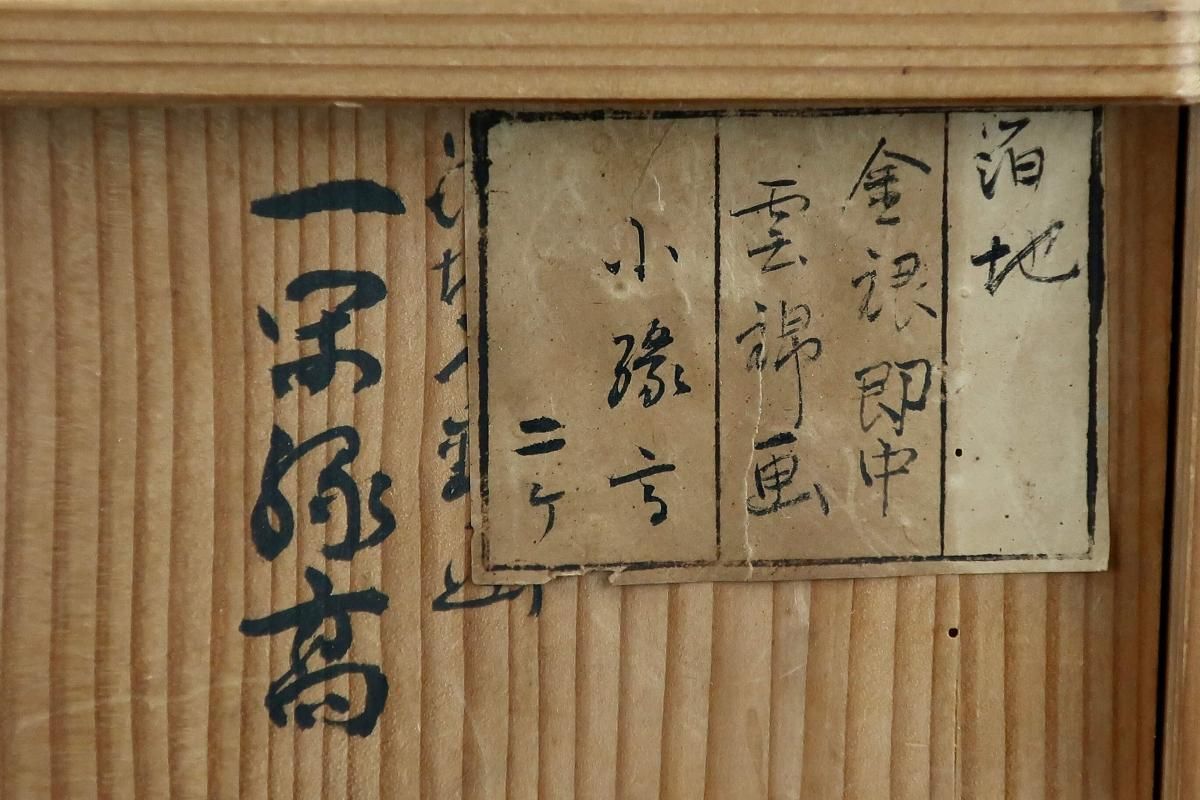 泊地
金銀即中
雲錦画
小縁高
二ケ
一閑縁高